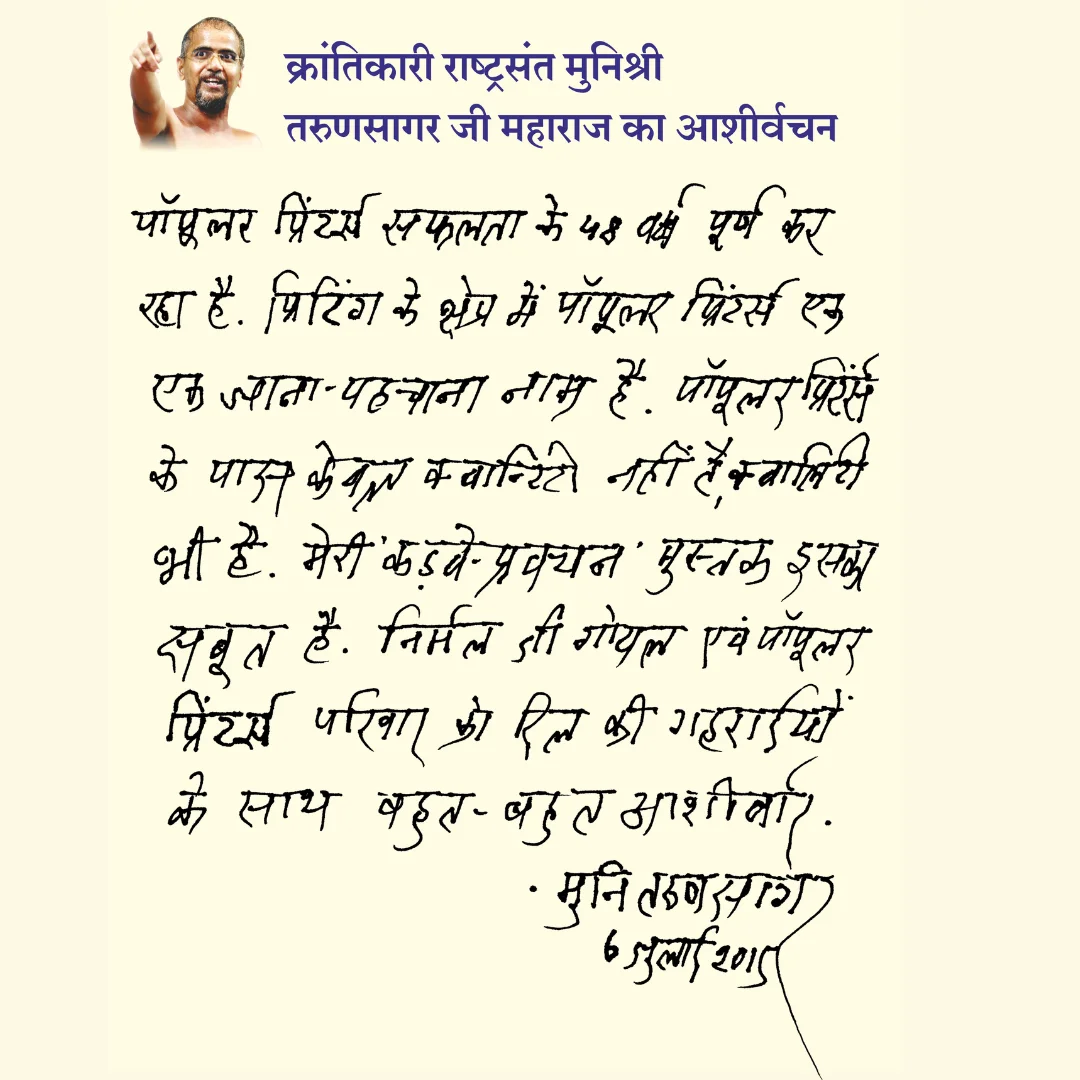 क्रांतिकारी राष्ट्रसंत मुनिश्री
तरुणसागर जी महाराज का आशीर्वचन
पॉपूलर प्रिंटर्स सफलता के 48 वर्ष पूर्ण कर
रहा है. प्रिटिंग के क्षेत्र में पॉपूलर प्रिंटर्स एक
एक जाना-पहचाना नाम है. पॉपूलर प्रिंटर्स
के पास केवल क्वान्टिटी नहीं है, क्वालिटी
भी है. मेरी 'कड़वे-प्रवचन' पुस्तक इसका
सबूत है. निर्मल जी गोयल एवं पॉपूलर
प्रिंटर्स परिवार को दिल की गहराईयों
के साथ बहुत-बहुत आशीर्वाद.
मुनि तरुणसागर
6 जुलाई